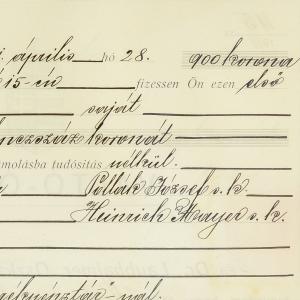 április hó 28. 900 korona
15-én fizessen Ön ezen első
saját
enczszáz koronát
zmolásba tudósitás nélkül.
Pollák József s.k.
Heinrich Mayer s.k.
nál.